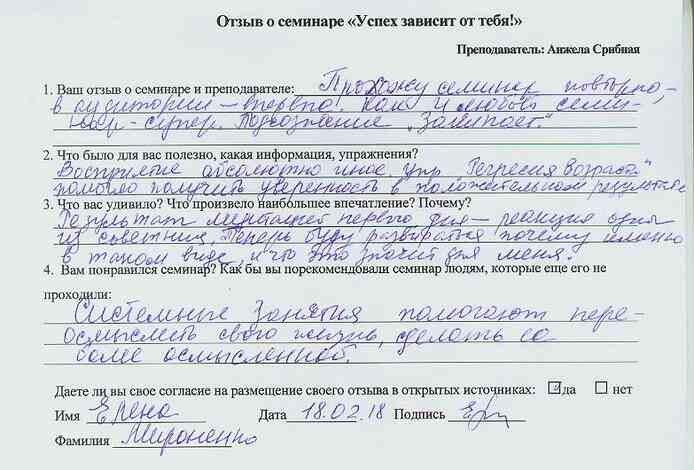 Отзыв о семинаре «Успех зависит от тебя!»
Преподаватель: Анжела Срибная
1. Ваш отзыв о семинаре и преподавателе: Прохожу семинар повторно,
в аудитории – впервые! Как и любой семи-
нар - супер. Подсознание "Залипает."
2. Что было для вас полезно, какая информация, упражнения?
Восприятие абсолютно иное. упр "Регрессия возраста"
помогло получить уверенность в положительном результате
3. Что вас удивило? Что произвело наибольшее впечатление? Почему?
Результат медитаций первого дня – реакция одна
из советниц. Теперь буду разбираться почему именно
в таком виде, и что это значит для меня.
4. Вам понравился семинар? Как бы вы порекомендовали семинар людям, которые еще его не
проходили:
Системные занятия помогают пере-
осмыслить свою жизнь, сделать ее
более осмысленной.
Даете ли вы свое согласие на размещение своего отзыва в открытых источниках: ☑да ☐ нет
Имя Елена Дата 18.02.18 Подпись
Фамилия Мироненко